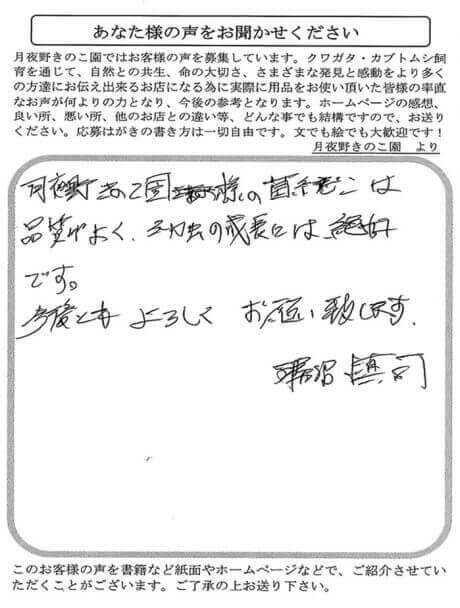 あなた様の声をお聞かせください
月夜野きのこ園ではお客様の声を募集しています。クワガタ・カブトムシ飼
育を通じて、自然との共生、命の大切さ、さまざまな発見と感動をより多く
の方達にお伝え出来るお店になる為に実際に用品をお使い頂いた皆様の率直
なお声が何よりの力となり、今後の参考となります。ホームページの感想、
良い所、悪い所、他のお店との違い等、どんな事でも結構ですので、お送り
ください。応募はがきの書き方は一切自由です。文でも絵でも大歓迎です！
月夜野きのこ園 より
月夜野きのこ園様の菌糸ビンは
品質がよく、幼虫の成長には絶好
です。
今後とも よろしく お願い致します.
慎司
このお客様の声を書籍など紙面やホームページなどで、ご紹介させてい
ただくことがございます。ご了承の上お送り下さい。